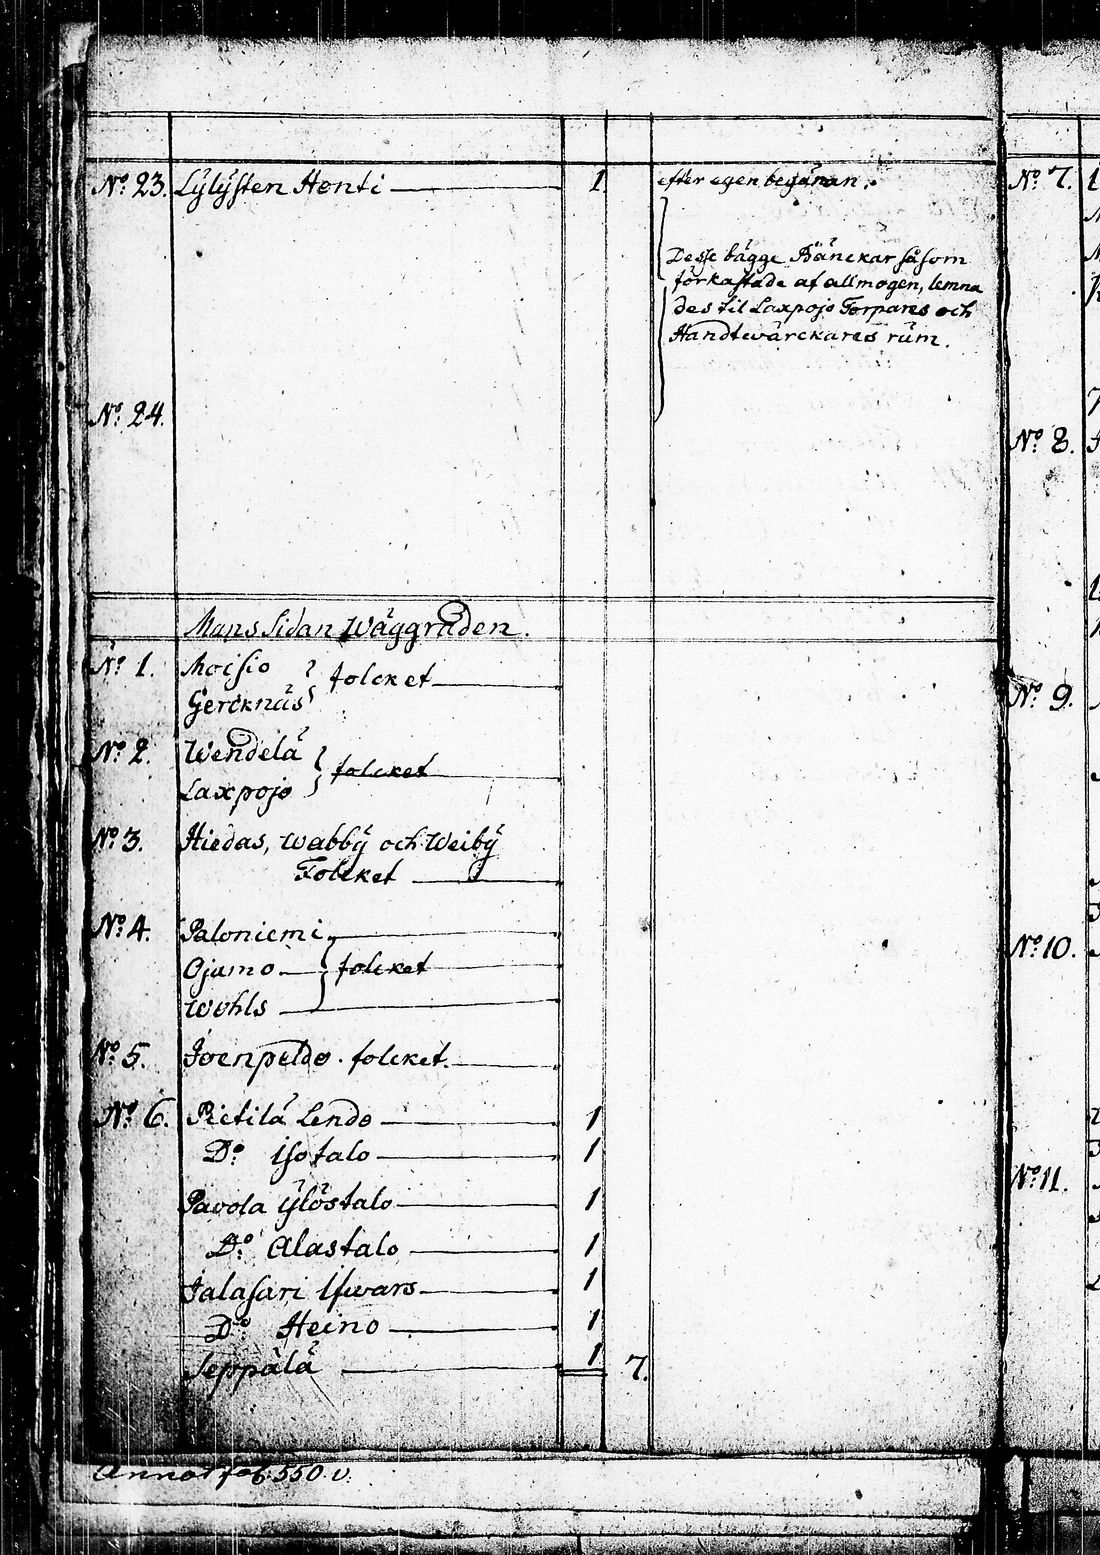 No. 23. Lÿlÿsten Honti — 1. efter egen begäran.
Desse bägge Bänckar såsom
förkastade af allmogen, lemna
des til Laxpojo Torpares och
Handtwärckares rum.
No. 24.
Mans Sidan Wäggraden.
No. 1. Moisio
Gercknäs } folcket
No. 2. Wendelä
Laxpojo } folcket
No. 3. Hiedas, Wabbÿ och Weibÿ
Folcket
No. 4. Paloniemi
Ojamo } folcket
Wohls
No. 5. Joenpeldo folcket.
No. 6. Pietilä Lendo — 1
Do. Isotalo — 1
Pavola Ÿlöstalo — 1
Do. Alastalo — 1
Jalasari Ifwars — 1
Do. Heino — 1
Seppälä — 1 7.
No. 7.
No. 8.
No. 9.
No. 10.
No. 11.
550. v.